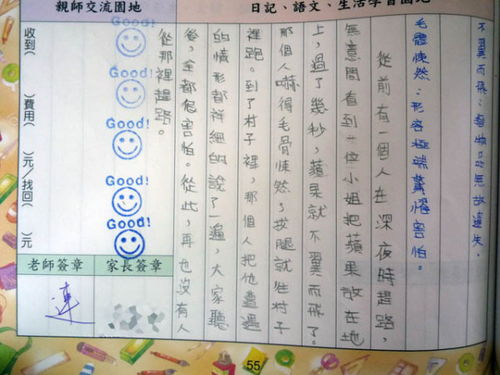 日記、語文、生活學習園地
不翼而飛：物無故遺失。
毛體悚然：形容極端驚懼害怕。
從前有一個人在深夜時趕路，
無意間看到一位小姐把蘋果放在地
上，過了幾秒，蘋果就不翼而飛了。
那個人嚇得毛骨悚然，拔腿就往村子
裡跑。到了村子裡，那個人把他遭遇
的情形都詳細的說了一遍，大家聽
後，全都很害怕。從此，再也沒有人
從那裡趕路。
親師交流園地
Good!
Good!
Good!
Good!
Good!
收到（　）費用（　）元／找回（　）元
家長簽章
老師簽章
連
55